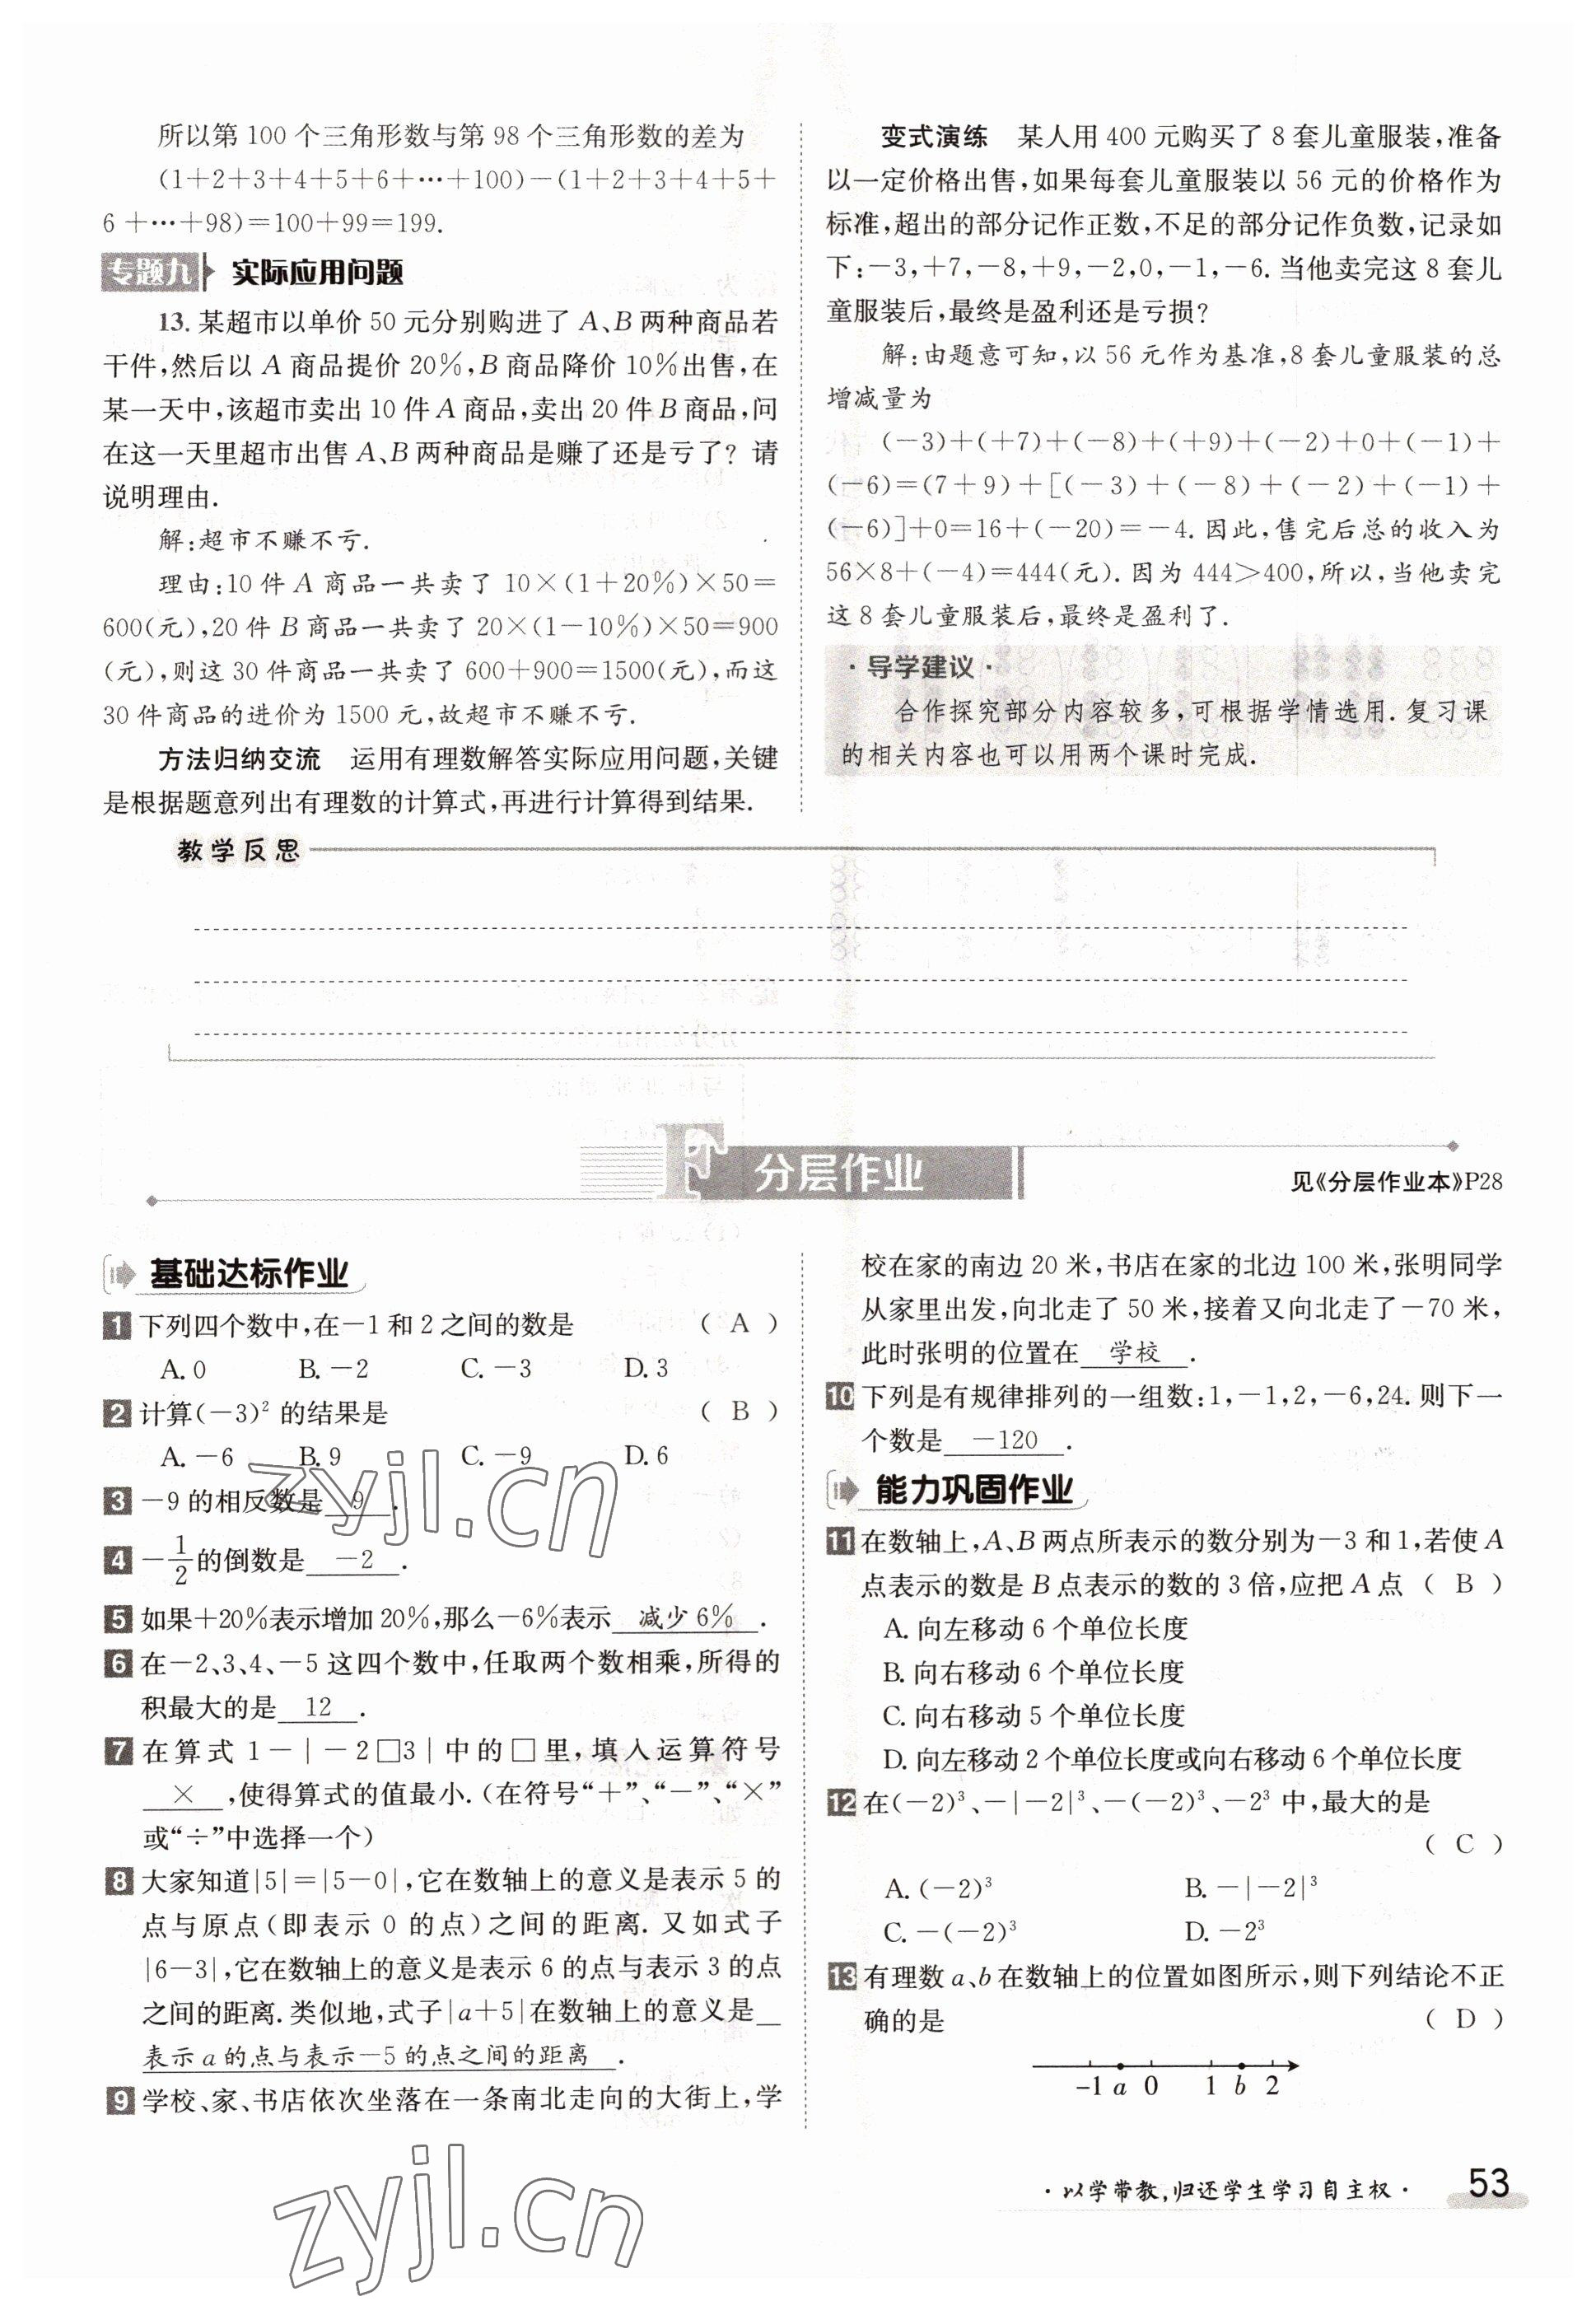 所以第 100 个三角形数与第 98 个三角形数的差为
(1+2+3+4+5+6+…+100)-(1+2+3+4+5+
6+…+98)=100+99=199.
专题九 实际应用问题
13. 某超市以单价 50 元分别购进了 A、B 两种商品若
干件,然后以 A 商品提价 20%,B 商品降价 10%出售,在
某一天中,该超市卖出 10 件 A 商品,卖出 20 件 B 商品,问
在这一天里超市出售 A、B 两种商品是赚了还是亏了? 请
说明理由.
解:超市不赚不亏.
理由:10 件 A 商品一共卖了 10×(1+20%)×50=
600(元),20 件 B 商品一共卖了 20×(1-10%)×50=900
(元),则这 30 件商品一共卖了 600+900=1500(元),而这
30 件商品的进价为 1500 元,故超市不赚不亏.
方法归纳交流 运用有理数解答实际应用问题,关键
是根据题意列出有理数的计算式,再进行计算得到结果.
变式演练 某人用 400 元购买了 8 套儿童服装,准备
以一定价格出售,如果每套儿童服装以 56 元的价格作为
标准,超出的部分记作正数,不足的部分记作负数,记录如
下:-3,+7,-8,+9,-2,0,-1,-6. 当他卖完这 8 套儿
童服装后,最终是盈利还是亏损?
解:由题意可知,以 56 元作为基准,8 套儿童服装的总
增减量为
(-3)+(+7)+(-8)+(+9)+(-2)+0+(-1)+
(-6)=(7+9)+[(-3)+(-8)+(-2)+(-1)+
(-6)]+0=16+(-20)=-4. 因此,售完后总的收入为
56×8+(-4)=444(元). 因为 444>400,所以,当他卖完
这 8 套儿童服装后,最终是盈利了.
·导学建议·
合作探究部分内容较多,可根据学情选用. 复习课
的相关内容也可以用两个课时完成.
教学反思
F 分层作业
见《分层作业本》P28
基础达标作业
1 下列四个数中,在-1 和 2 之间的数是 ( A )
A. 0 B. -2 C. -3 D. 3
2 计算(-3)² 的结果是 ( B )
A. -6 B. 9 C. -9 D. 6
3 -9 的相反数是 9 .
4 -1/2 的倒数是 -2 .
5 如果+20%表示增加 20%,那么-6%表示 减少 6% .
6 在-2、3、4、-5 这四个数中,任取两个数相乘,所得的
积最大的是 12 .
7 在算式 1-|-2□3|中的□里,填入运算符号
× ,使得算式的值最小. (在符号“+”、“-”、“×”
或“÷”中选择一个)
8 大家知道|5|=|5-0|,它在数轴上的意义是表示 5 的
点与原点(即表示 0 的点)之间的距离. 又如式子
|6-3|,它在数轴上的意义是表示 6 的点与表示 3 的点
之间的距离. 类似地,式子|a+5|在数轴上的意义是
表示 a 的点与表示-5 的点之间的距离 .
9 学校、家、书店依次坐落在一条南北走向的大街上,学
校在家的南边 20 米,书店在家的北边 100 米,张明同学
从家里出发,向北走了 50 米,接着又向北走了-70 米,
此时张明的位置在 学校 .
10 下列是有规律排列的一组数:1,-1,2,-6,24. 则下一
个数是 -120 .
能力巩固作业
11 在数轴上,A、B 两点所表示的数分别为-3 和 1,若使 A
点表示的数是 B 点表示的数的 3 倍,应把 A 点 ( B )
A. 向左移动 6 个单位长度
B. 向右移动 6 个单位长度
C. 向右移动 5 个单位长度
D. 向左移动 2 个单位长度或向右移动 6 个单位长度
12 在(-2)³、-|-2|³、-(-2)³、-2³ 中,最大的是
( C )
A. (-2)³ B. -|-2|³
C. -(-2)³ D. -2³
13 有理数 a、b 在数轴上的位置如图所示,则下列结论不正
确的是 ( D )
-1 a 0 1 b 2
·以学带教,归还学生学习自主权·
53
zyjl.cn
zyjl.cn